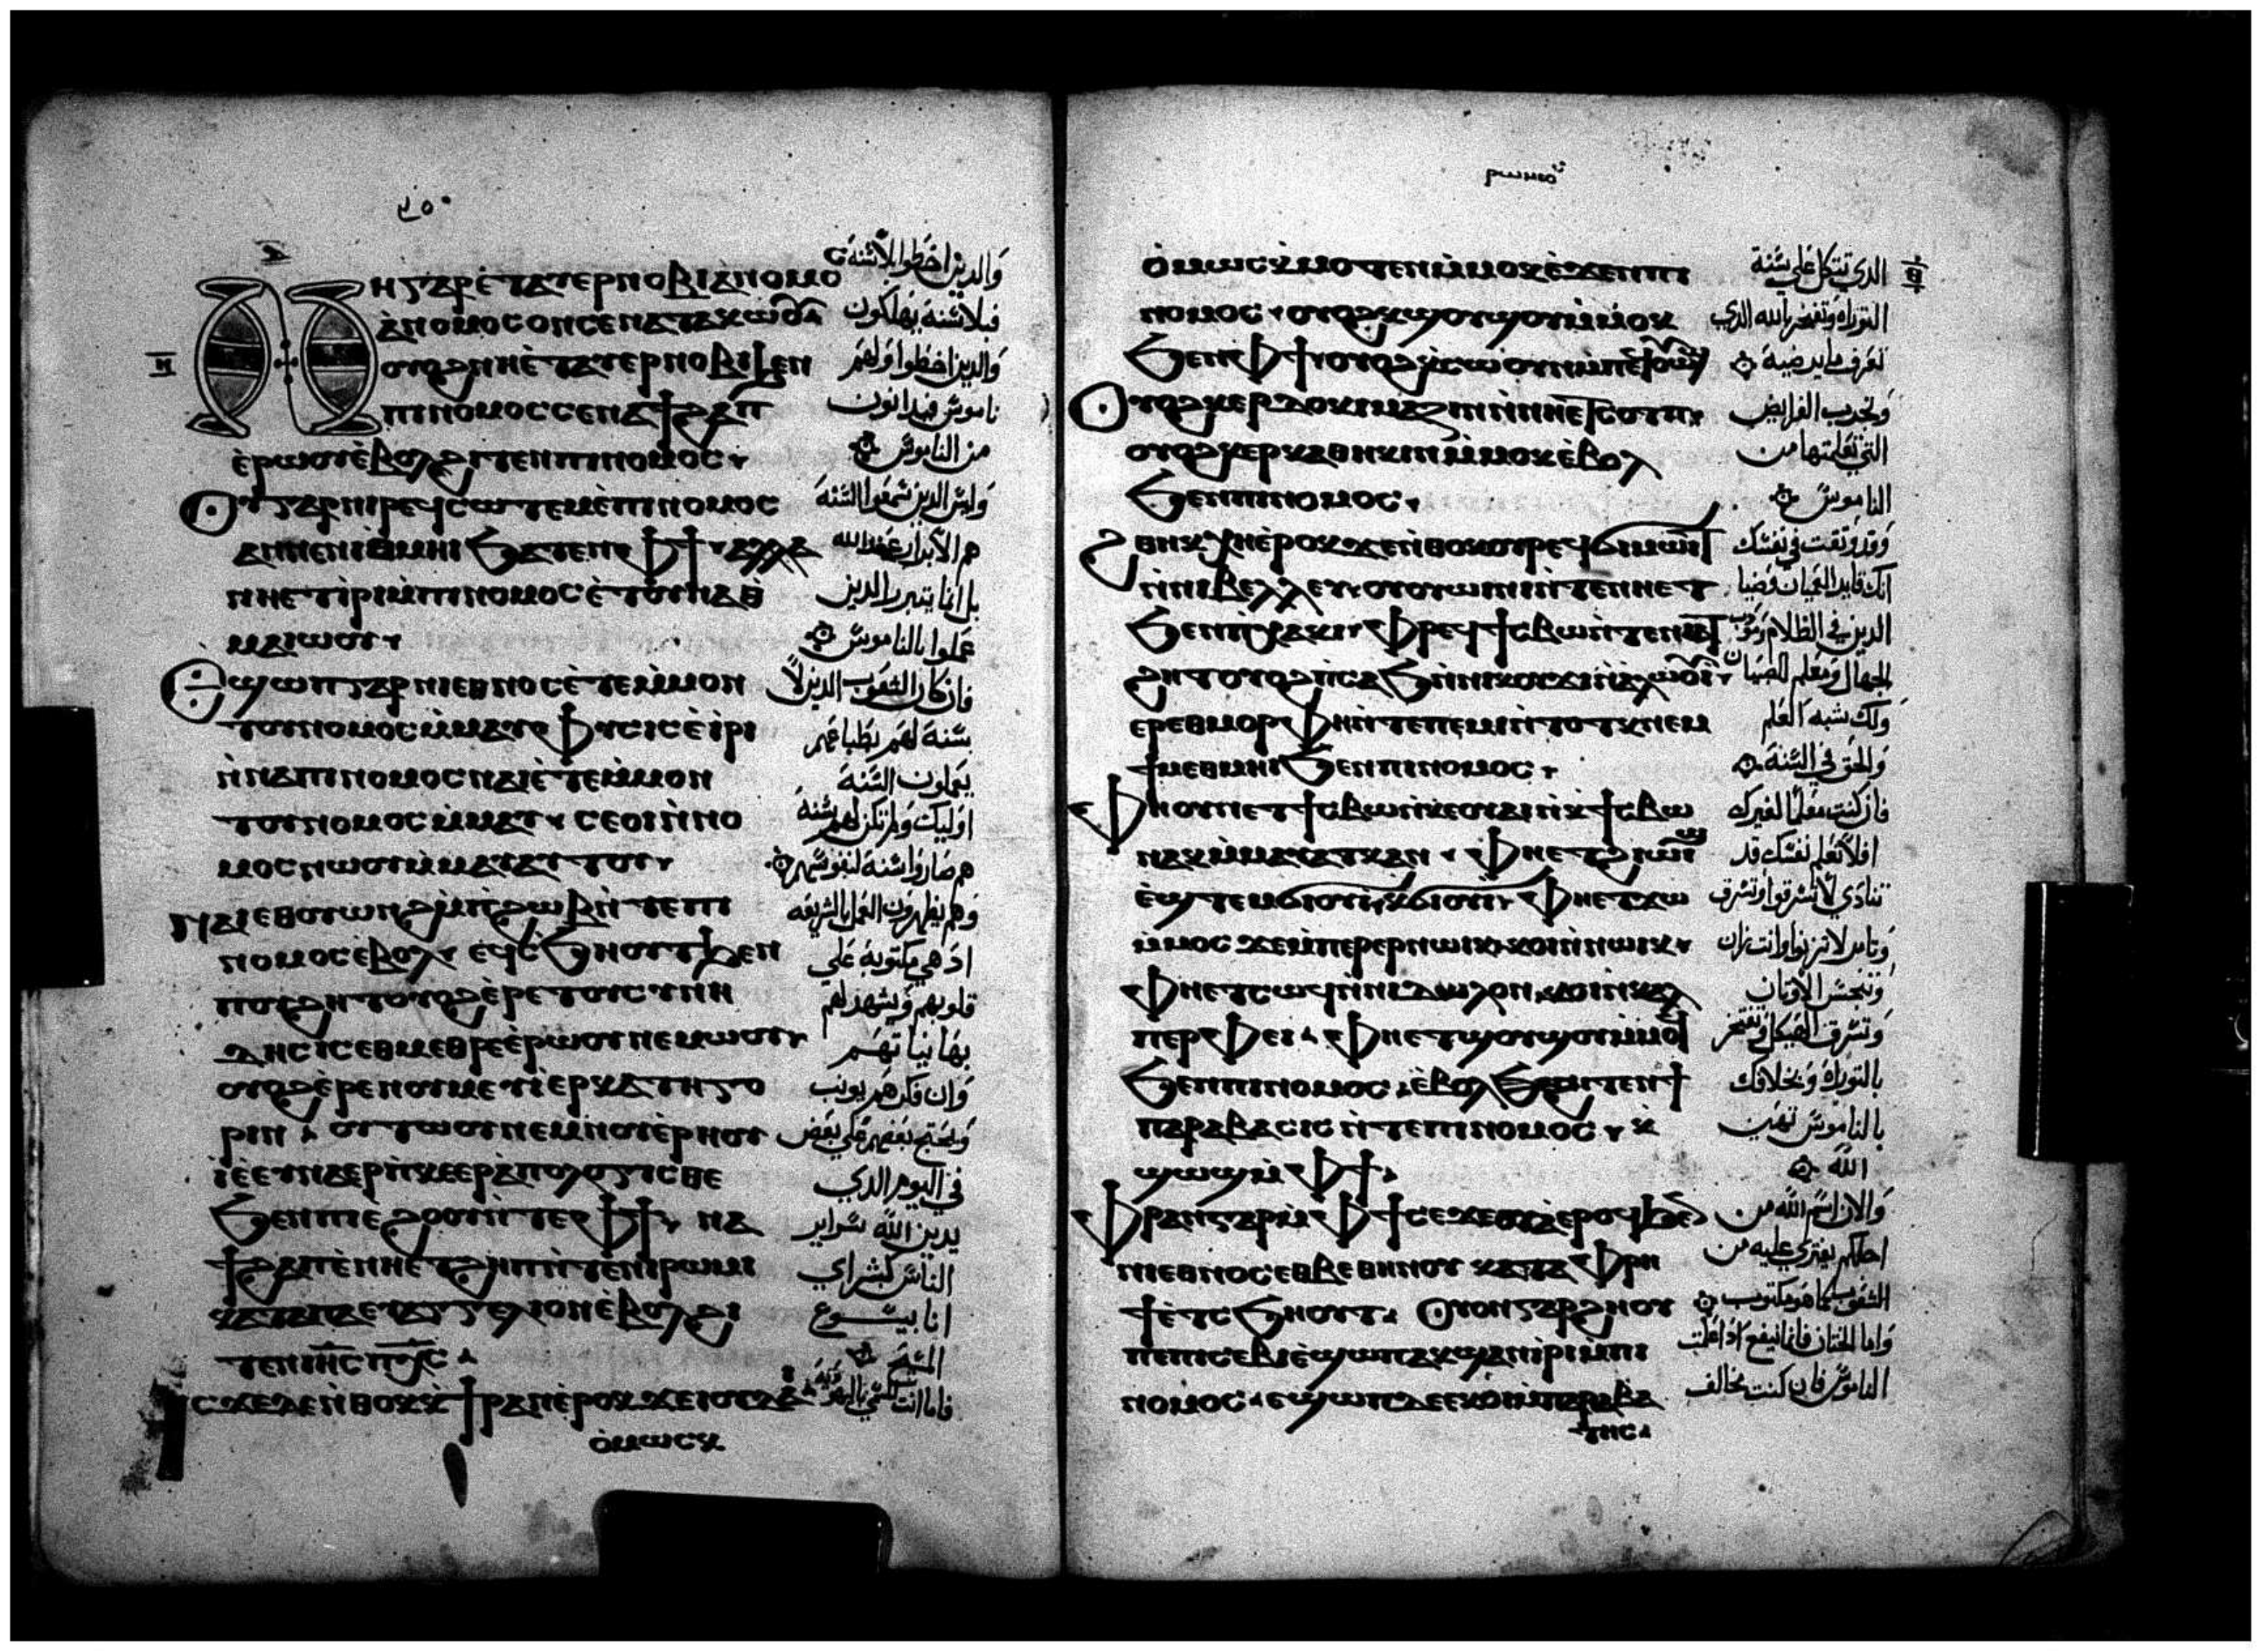 ⲛⲏⲅⲁⲣⲉ̀ⲧⲁⲩⲉⲣⲛⲟⲃⲓⲁ̀ⲛⲟⲙⲟ
ⲁ̀ⲛⲟⲙⲟⲥⲟⲛⲥⲉⲛⲁⲧⲁⲕⲱⲟⲩ
ⲟⲩⲟϩⲛⲏⲉ̀ⲧⲁⲩⲉⲣⲛⲟⲃⲓϧⲉⲛ
ⲡⲓⲛⲟⲙⲟⲥⲥⲉⲛⲁϯϩⲁⲡ
ⲉ̀ⲣⲱⲟⲩⲉ̀ⲃⲟⲗϩⲓⲧⲉⲛⲡⲓⲛⲟⲙⲟⲥ
ⲟⲩⲅⲁⲣⲛⲓⲣⲉϥⲥⲱⲧⲉⲙⲉ̀ⲡⲓⲛⲟⲙⲟⲥ
ⲁⲛⲛⲉⲛⲓⲑⲙⲏⲓϧⲁⲧⲉⲛⲫϯⲁⲗⲗⲁ
ⲛⲏⲉⲧⲓ̀ⲣⲓⲙ̀ⲡⲓⲛⲟⲙⲟⲥⲉ̀ⲧⲟⲩⲛⲁⲑ
ⲙⲁⲓⲱⲟⲩ
ⲉϣⲱⲡⲅⲁⲣⲛⲓⲉⲑⲛⲟⲥⲉ̀ⲧⲉⲙ̀ⲙⲟⲛ
ⲧⲟⲩⲛⲟⲙⲟⲥⲙ̀ⲙⲁⲩⲫⲩⲥⲓⲥⲉ̀ⲓⲣⲓ
ⲛ̀ⲛⲁⲡⲓⲛⲟⲙⲟⲥⲛⲁⲓⲉ̀ⲧⲉⲙ̀ⲙⲟⲛ
ⲧⲟⲩⲛⲟⲙⲟⲥⲙ̀ⲙⲁⲩⲥⲉⲟⲓⲛ̀ⲛⲟ
ⲙⲟⲥⲛⲱⲟⲩⲙ̀ⲙⲁⲩⲁⲧⲟⲩ
ⲛⲁⲓⲉⲑⲟⲩⲱⲛϩⲙ̀ⲡϩⲱⲃⲛ̀ⲧⲉⲡⲓ
ⲛⲟⲙⲟⲥⲉ̀ⲃⲟⲗⲉϥⲥϧⲏⲟⲩⲧϧⲉⲛ
ⲡⲟⲩϩⲏⲧⲟⲩⲟϩⲉ̀ⲣⲉⲧⲟⲩⲥⲩⲛⲏ
ⲇⲏⲥⲓⲥⲉⲑⲙⲉⲑⲣⲉⲉ̀ⲣⲱⲟⲩⲛⲉⲙⲱⲟⲩ
ⲟⲩⲟϩⲉ̀ⲣⲉⲛⲟⲩⲙⲉⲩⲓⲉ̀ⲣⲕⲁⲧⲏⲅⲟ
ⲣⲓⲛⲟⲩⲧⲱⲟⲩⲛⲉⲙⲛⲟⲩⲉ̀ⲣⲏⲟⲩ
ⲓⲉ̀ⲉⲩⲛⲁⲉⲣⲡ̀ⲕⲉⲉⲣⲁ̀ⲡⲟⲗⲟⲅⲓⲥⲑⲉ
ϧⲉⲛⲡⲓⲉϩⲟⲟⲩⲛ̀ⲧⲉⲫϯⲛⲁ
ϯϩⲁⲡⲉ̀ⲛⲏⲉⲧϩⲏⲡⲛ̀ⲧⲉⲛⲓⲣⲱⲙⲓ
ⲕⲁⲧⲁⲡⲁⲉⲩⲁⲅⲅⲉⲗⲓⲟⲛⲉ̀ⲃⲟⲗϩⲓ
ⲧⲉⲛⲓⲏⲥⲡⲭⲥ
ⲓⲥϫⲉⲇⲉⲛ̀ⲑⲟⲕⲕ̀ϯⲣⲁⲛⲉ̀ⲣⲟⲕϫⲉⲓⲟⲩⲇⲁⲓ
ⲟ̀ⲙⲱⲥⲕ
والدين اخطوا بلا سنة
فبلا سنة يهلكون
والدين اخطوا ولهم
ناموس فيدانون
من الناموس
وليس الدين سمعوا السنة
هم الابرار عند الله
بل انما يتبرر الدين
عملوا بالناموس
فان كان الشعوب الدين لا
سنة لهم بطباعهم
يعملون السنة
اوليك ولم تكن لهم سنة
هم صاروا سنة لنفوسهم
وهم يظهرون العمل بالشريعه
اد هي مكتوبة علي
قلوبهم ويشهد لهم
بها نياتهم
في اليوم الدي
يدين الله سراير
الناس كبشراي
انا بيسوع
المسيح
ⲣⲱⲙⲉⲟⲩ
ⲟ̀ⲙⲱⲥⲕⲙⲟⲧⲉⲛⲙ̀ⲙⲟⲕⲉ̀ϫⲉⲛⲡⲓ
ⲛⲟⲙⲟⲥⲟⲩⲟϩⲕϣⲟⲩϣⲟⲩⲙ̀ⲙⲟⲕ
ϧⲉⲛⲫϯⲟⲩⲟϩⲕ̀ⲥⲱⲟⲩⲛⲙ̀ⲡⲉⲧⲉϩⲛⲁϥ
ⲟⲩⲟϩⲕⲉⲣⲇⲟⲕⲓⲙⲁⲍⲓⲛⲛ̀ⲛⲏⲉⲧⲥⲟⲧⲡ
ⲟⲩⲟϩⲕⲉⲣⲕⲁⲑⲏⲕⲓⲛⲙ̀ⲙⲟⲕⲉ̀ⲃⲟⲗ
ϧⲉⲛⲡⲓⲛⲟⲙⲟⲥ
ϩⲑⲏⲕⲭⲏⲉ̀ⲣⲟⲕϫⲉⲛ̀ⲑⲟⲕⲟⲩⲣⲉϥϭⲓⲙⲱⲓⲧ
ⲛ̀ⲛⲓⲃⲉⲗⲗⲉⲩⲟⲩⲟⲩⲱⲓⲛⲓⲛ̀ⲧⲉⲛⲏⲉⲧ
ϧⲉⲛⲡⲭⲁⲕⲓⲫⲣⲉϥϯⲥⲃⲱⲛ̀ⲧⲉⲛⲓⲁⲧ
ϩⲏⲧⲟⲩⲟϩⲡ̀ⲥⲁϧⲛ̀ⲛⲓⲕⲟⲩϫⲓⲛ̀ⲁ̀ⲗⲱⲟⲩⲓ
ⲉⲣⲉⲑⲙⲟⲣⲫⲏⲛ̀ⲧⲉⲡⲉⲙⲓⲛ̀ⲧⲟⲧⲕⲛⲉⲙ
ϯⲙⲉⲑⲙⲏⲓϧⲉⲛⲡⲓⲛⲟⲙⲟⲥ
ⲫⲏⲟⲩⲛⲉⲧϯⲥⲃⲱⲛ̀ⲕⲉⲟⲩⲁⲓⲛ̀ⲕ̀ϯⲥⲃⲱ
ⲛⲁⲕⲙ̀ⲙⲁⲩⲁⲧⲕⲁⲛⲫⲏⲉⲧϩⲓⲱⲓϣ
ⲉ̀ϣⲧⲉⲙϭⲓⲟⲩⲓ̀ⲕϭⲓⲟⲩⲓ̀ⲫⲏⲉⲧϫⲱ
ⲙ̀ⲙⲟⲥϫⲉⲙ̀ⲡⲉⲣⲉⲣⲛⲱⲓⲕⲕⲟⲓⲛ̀ⲛⲱⲓⲕ
ⲫⲏⲉⲧⲥⲱϥⲛ̀ⲛⲓⲇⲱⲗⲟⲛⲕⲟⲓⲛ̀ⲕⲁⲗ
ⲡⲉⲣⲫⲉⲓⲫⲏⲉⲧϣⲟⲩϣⲟⲩⲙ̀ⲙⲟϥ
ϧⲉⲛⲡⲓⲛⲟⲙⲟⲥⲉ̀ⲃⲟⲗϩⲓⲧⲉⲛϯ
ⲡⲁⲣⲁⲃⲁⲥⲓⲥⲛ̀ⲧⲉⲡⲓⲛⲟⲙⲟⲥⲕ̀
ϣⲱϣⲙ̀ⲫϯ
ⲫⲣⲁⲛⲅⲁⲣⲙ̀ⲫϯⲥⲉϫⲉⲟⲩⲁⲉ̀ⲣⲟϥϧⲉⲛ
ⲛⲓⲉⲑⲛⲟⲥⲉⲑⲃⲉⲑⲏⲛⲟⲩⲕⲁⲧⲁⲫⲣⲏ
ϯⲉ̀ⲧⲥϧⲏⲟⲩⲧⲟⲩⲟⲛⲅⲁⲣϩⲏⲟⲩ
ⲙ̀ⲡⲓⲥⲉⲃⲓⲉ̀ϣⲱⲡⲁⲕϣⲁⲛⲓ̀ⲣⲓⲙ̀ⲡⲓ
ⲛⲟⲙⲟⲥⲉϣⲱⲡⲇⲉⲉⲕⲟⲓⲙ̀ⲡⲁⲣⲁⲃⲁ
ⲧⲏⲥ
الدي تتكل علي سنة
التوراه وتفتخر بالله الدي
تعرف ما يرضيه
التي تعلمتها من
الناموس
وقد وثقت في نفسك
انك قايد العميان وضيا
الدين في الظلام ومودب
الجهال ومعلم الصبيان
ولك شبه العلم
والحق في السنة
فان كنت معلما لغيرك
افلا تعلم نفسك قد
تنادي لا تسرقوا وتسرق
وتامر لا تزنوا وانت زان
وتنجس الاوثان
وتسرق الهيكل وتفتخر
بالتوراه وبخلافك
بالناموس تهين
الله
والان اسم الله من
اجلكم يفتري عليه من
الشعوب كما هو مكتوب
واما الختان فانما ينفع ادا عملت
الناموس فان كنت مخالف